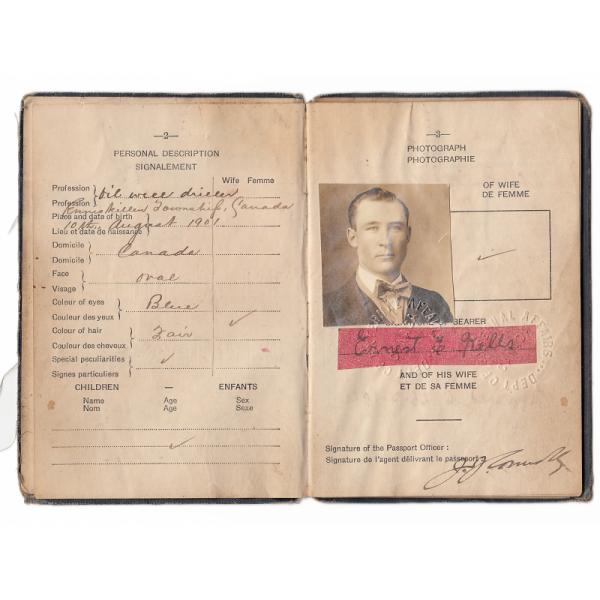 —2—
PERSONAL DESCRIPTION
SIGNALEMENT
Wife Femme
Profession
Profession
oil well driller
Enniskillen Township, Canada
Place and date of birth
10th, August 1901
Lieu et date de naissance
Domicile
Domicile
Canada
Face
Visage
oval
Colour of eyes
Couleur des yeux
Blue
Colour of hair
Couleur des cheveux
Fair
Special peculiarities
Signes particuliers
CHILDREN — ENFANTS
Name Age Sex
Nom Age Sexe
—3—
PHOTOGRAPH
PHOTOGRAPHIE
OF WIFE
DE FEMME
BEARER
Ernest E Kells
AND OF HIS WIFE
ET DE SA FEMME
Signature of the Passport Officer :
Signature de l'agent délivrant le passeport :